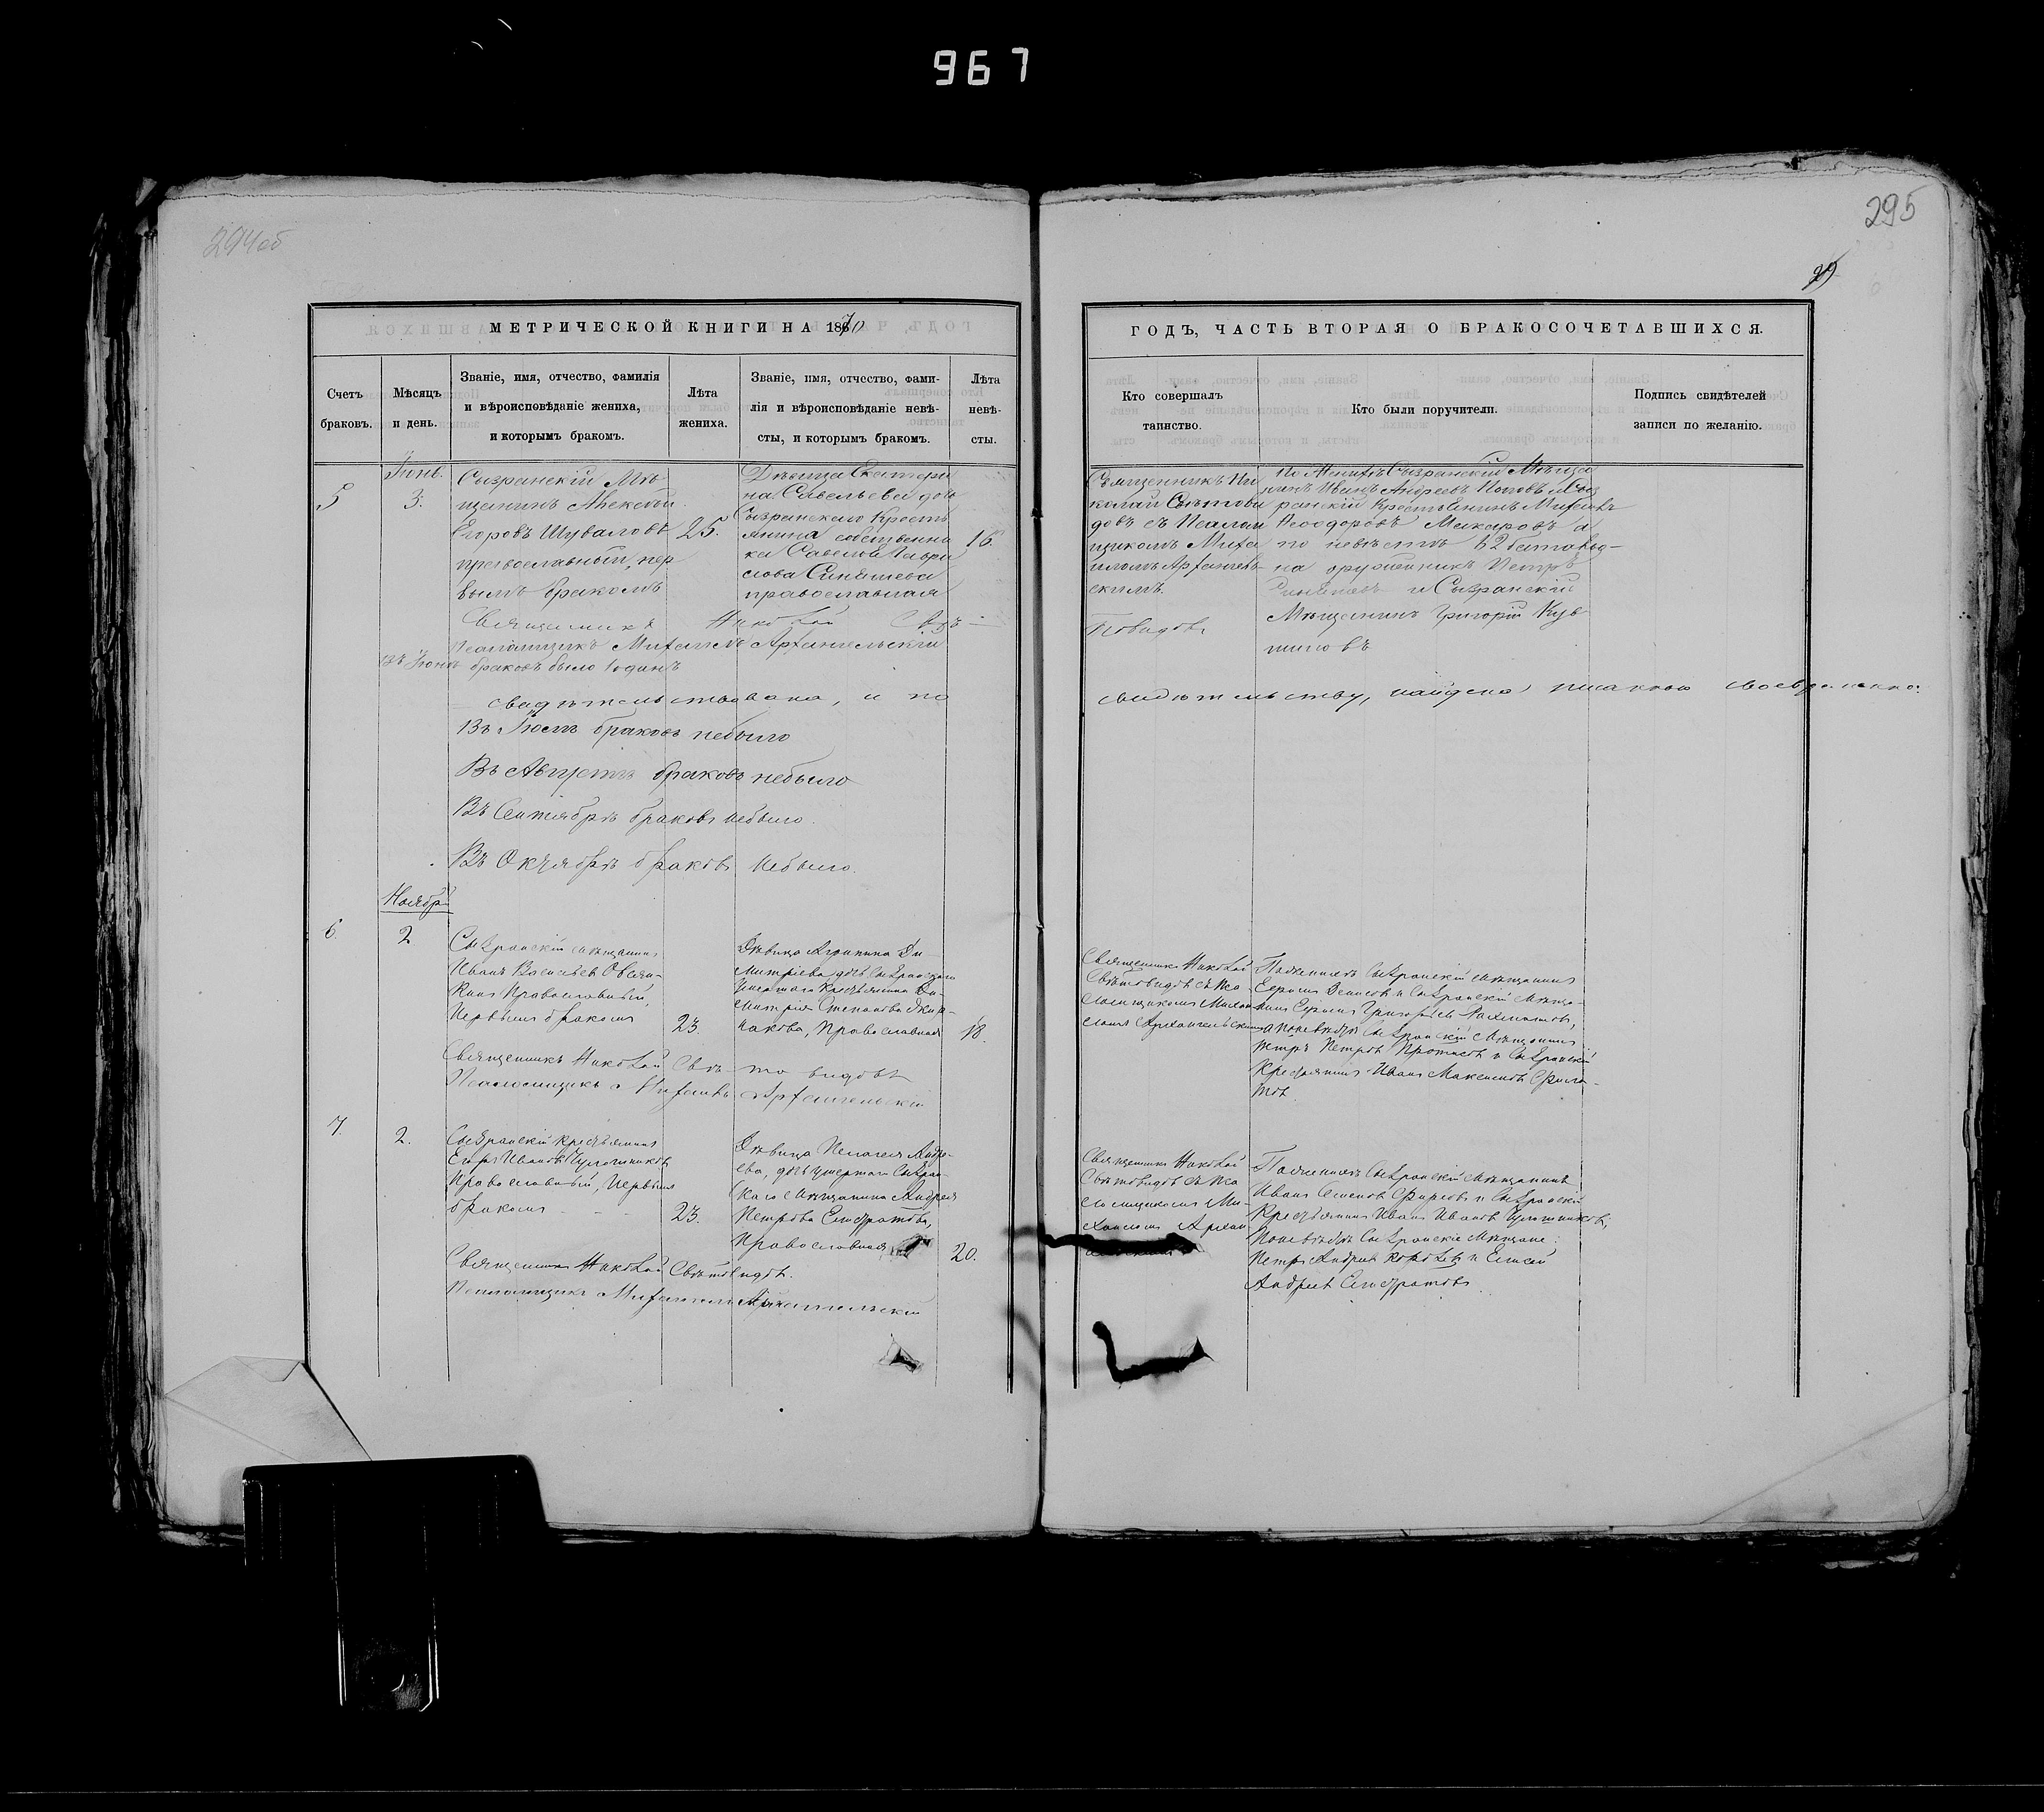 967
294об
295
МЕТРИЧЕСКОЙ КНИГИ НА 1870
ГОДЪ, ЧАСТЬ ВТОРАЯ О БРАКОСОЧЕТАВШИХСЯ.
Счетъ браковъ.
Мѣсяцъ и день.
Званіе, имя, отчество, фамилія
и вѣроисповѣданіе жениха,
и которымъ бракомъ.
Лѣта
жениха.
Званіе, имя, отчество, фами-
лія и вѣроисповѣданіе невѣ-
сты, и которымъ бракомъ.
Лѣта
невѣ-
сты.
Кто совершалъ
таинство.
Кто были поручители.
Подпись свидѣтелей
записи по желанію.
5
Іюнь.
3.
Сызранскій Мѣ-
щанинъ Алексѣй
Егоровъ Шуваловъ
православный, пер
вымъ бракомъ
25.
Дѣвица Екатери
на Савельева дочь
Сызранскаго Кресть
янина собственни
ка Савелія Гаври
лова
православная
16.
Священникъ Ни
колай Свѣтови
довъ съ Псалом
щикомъ Миха
иломъ Архангель-
скимъ.
По Женихѣ Сызранскій Мѣща
нинъ Иванъ Андреевъ Поповъ и Сыз
ранскій Крестьянинъ Михаилъ
Ѳеодоровъ Макаровъ а
по невѣстѣ
Петръ
и Сызранскій
Мѣщанинъ Григорій
Священникъ Николай Свѣ-
товидовъ
Псаломщикъ Михаилъ Архангельскій
Въ Іюнѣ браковъ было 1 одинъ
свидѣтельствована, и по
свидѣтельству, найдена писанною своевременно.
Въ Іюлѣ браковъ небыло
Въ Августѣ браковъ небыло
Въ Сентябрѣ браковъ небыло.
Въ Октябрѣ браковъ небыло.
Ноябрь
6.
2
Сызранскій мѣщанинъ
Иванъ Васильевъ Овсян-
кинъ Православный,
Первымъ бракомъ
23.
Дѣвица Агрипина Ди-
митріева, дочь Сызранскаго
умершаго Крестьянина Ди-
митрія Степанова
Православная
18.
Священникъ Николай
Свѣтовидовъ съ Пса-
ломщикомъ Михаи-
ломъ Архангельскимъ
По женихѣ Сызранскій мѣщанинъ
Герасимъ Денисовъ и Сызранскій Мѣща-
нинъ Григорьевъ
а по невѣстѣ Сызранскій Мѣщанинъ
Петръ Петровъ и Сызранскій
Крестьянинъ Иванъ Максимовъ Фила-
товъ.
Священникъ Николай Свѣ-товидовъ
Псаломщикъ Михаилъ Архангельскій
7.
2.
Сызранскій крестьянинъ
Егоръ Ивановъ
Православный, Первымъ
бракомъ
23.
Дѣвица Пелагея Андре-
ева, дочь умершаго Сызран-
скаго Мѣщанина Андрея
Петрова Евстратова,
Православная
20.
Священникъ Николай
Свѣтовидовъ съ Пса-
ломщикомъ Ми-
хаиломъ Архан-
По женихѣ Сызранскій Мѣщанинъ
Иванъ Семеновъ Фирсовъ и Сызранскій
Крестьянинъ Иванъ Ивановъ
По невѣстѣ Сызранскіе Мѣщане:
Петръ Андреевъ и Елисей
Андреевъ Евстратовъ.
Священникъ Николай Свѣтовидовъ.
Псаломщикъ Михаилъ Архангельскій